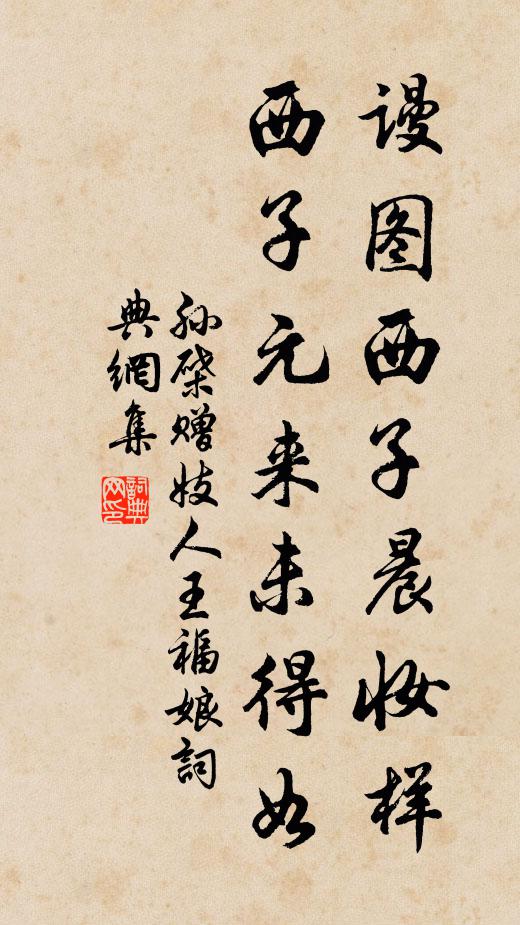 谩图西子晨妆样
西子元来未得如
孙棨赠妓人王福娘詞
典網集
詞典网印